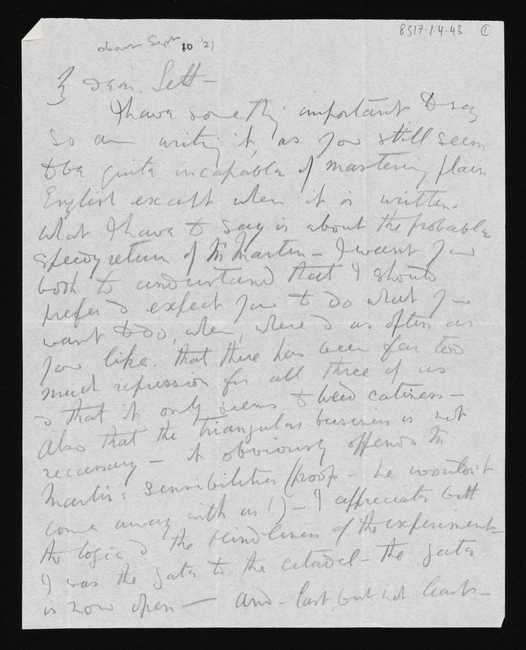 8317.1.4.43 ①
about Sept 10 '21
My dear Sett -
I have something important to say
so am writing it, as you still seem
to be quite incapable of mastering plain
English except when it is written.
What I have to say is about the probable
speedy return of Mr Martin - I want you
both to understand that I should
prefer & expect you to do what you
want to do, when, where & as often as
you like. That there has been far too
much repression for all three of us
& that it only seems to breed cattiness -
Also that the triangular business is not
necessary - it obviously offends Mr
Martin's sensibilities (proof - he wouldn't
come away with us!) - I appreciate both
the logic & the kindliness of the experiment -
I was the gate to the citadel - the gate
is now open - And - last, but not least -